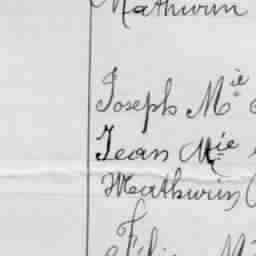 Mathurin
Joseph Mie
Jean Mie
Mathurin